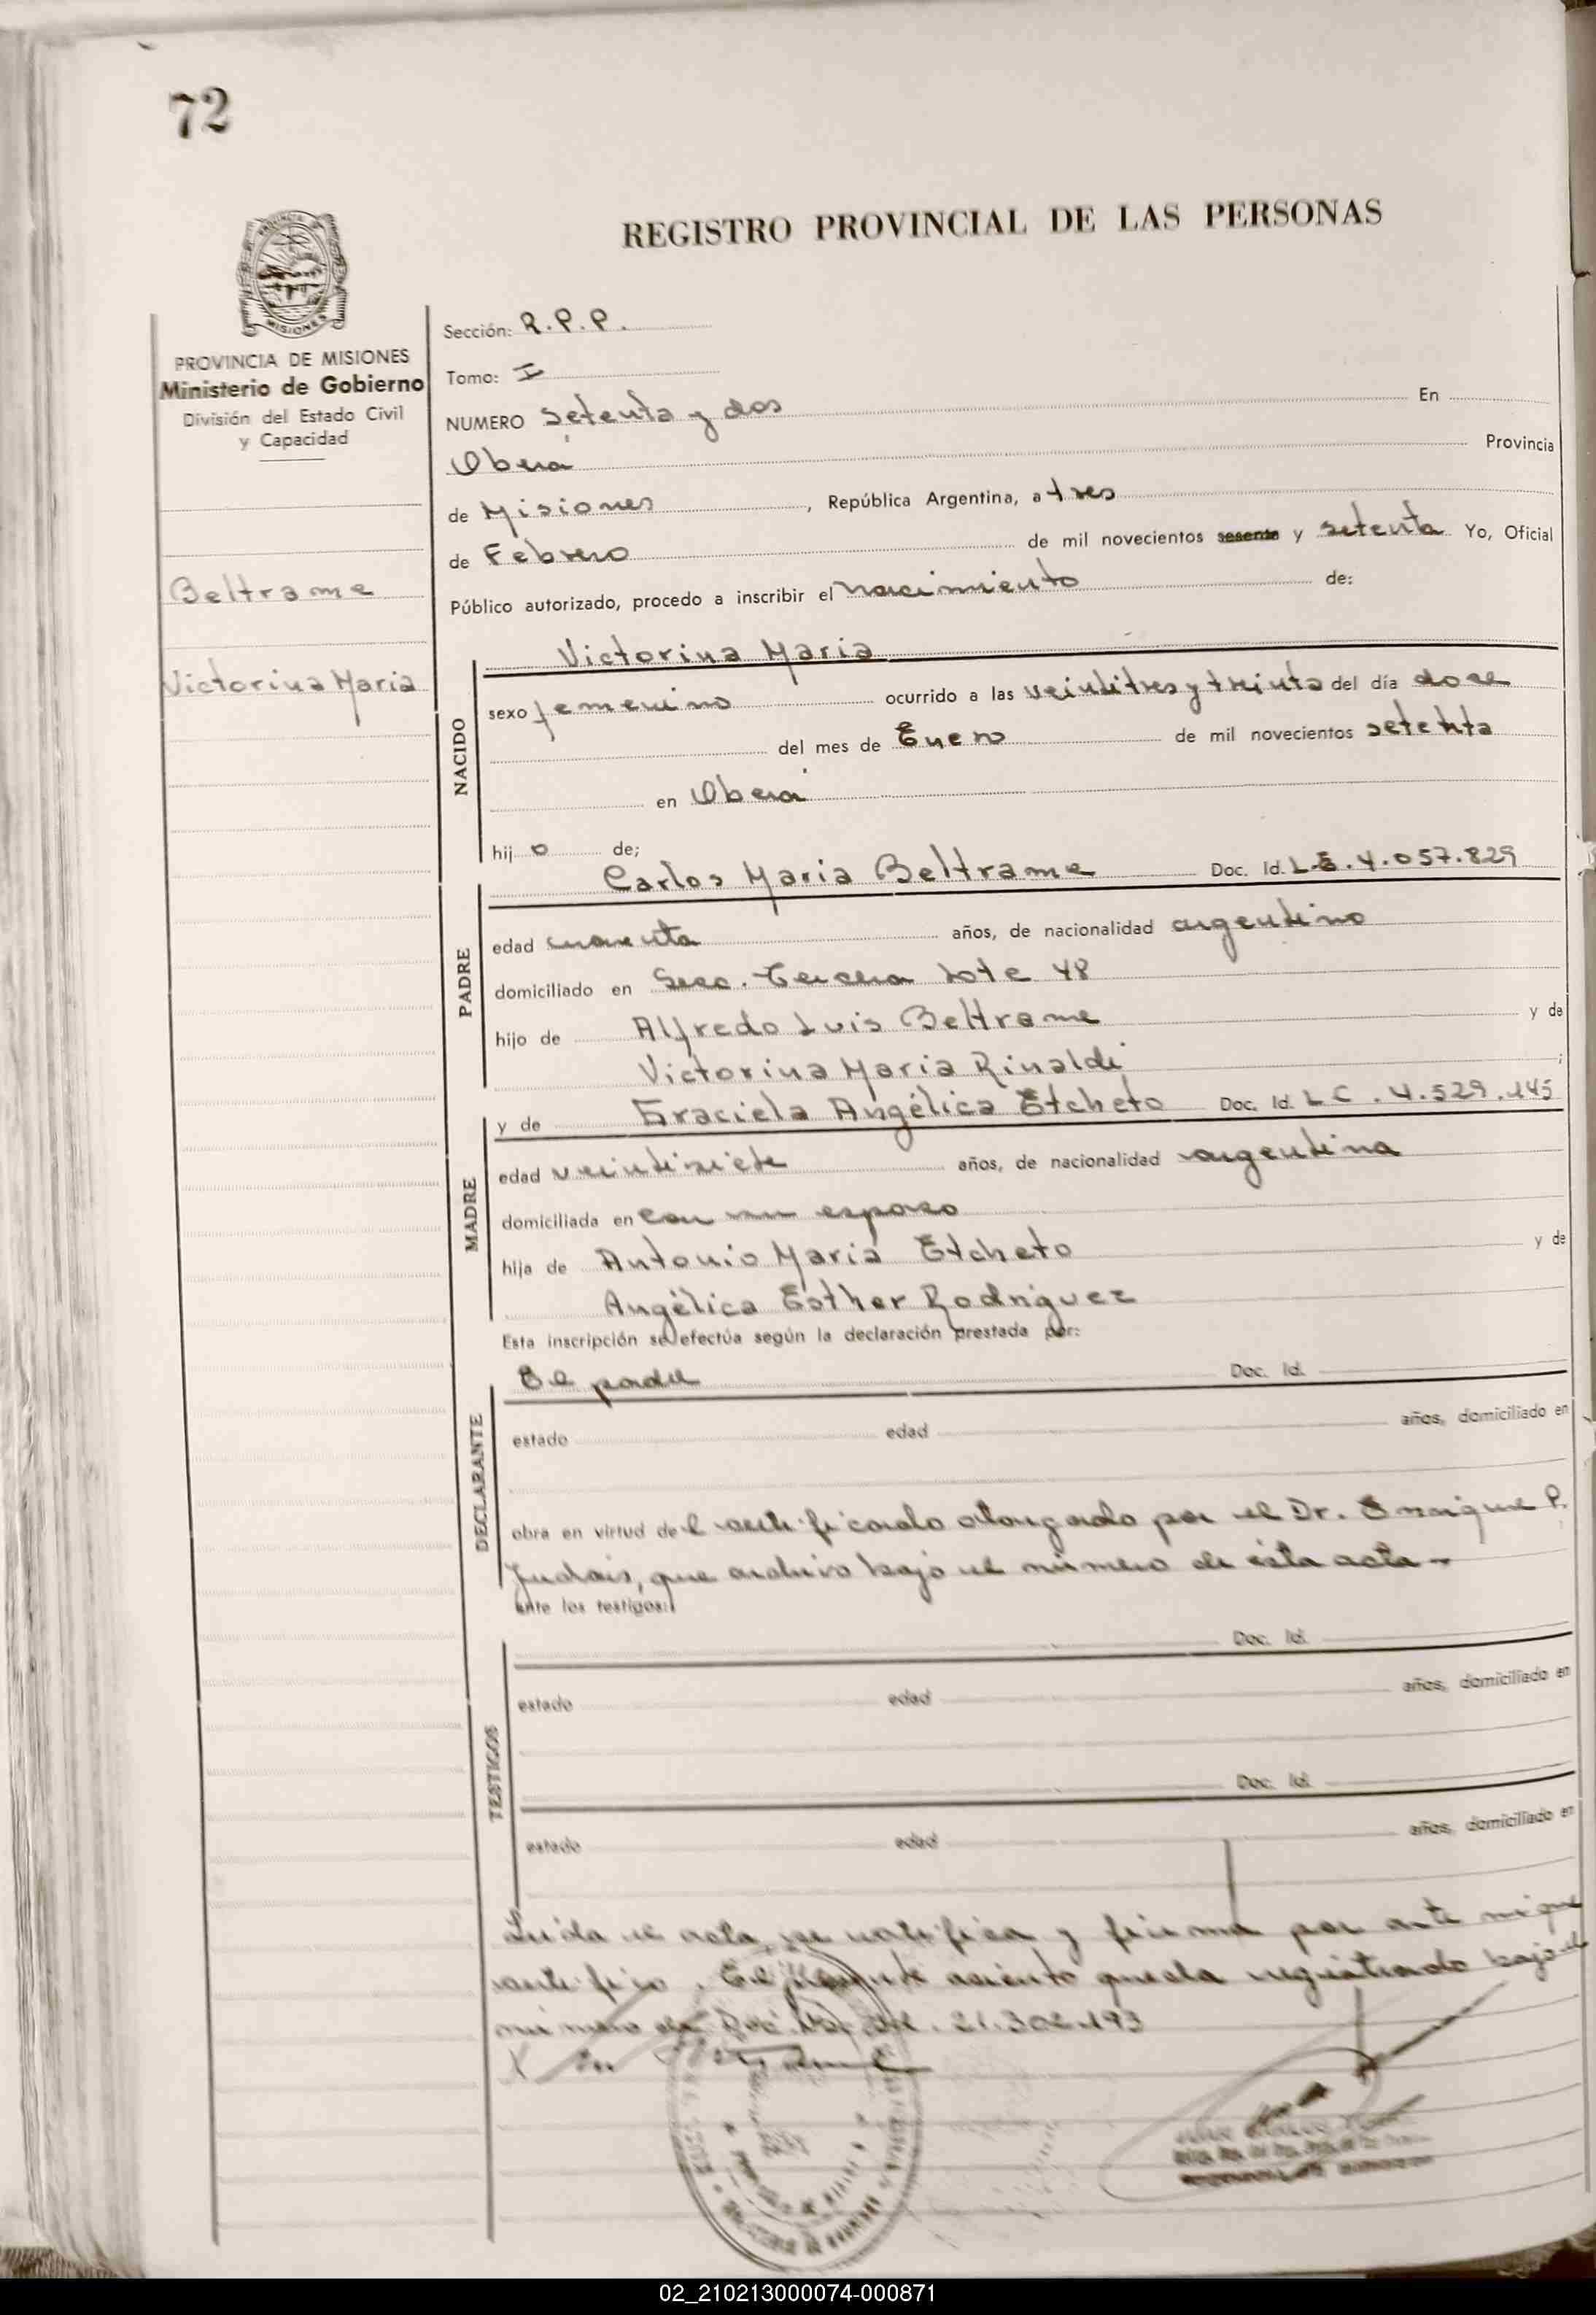 72
REGISTRO PROVINCIAL DE LAS PERSONAS
MISIONES
PROVINCIA DE MISIONES
Ministerio de Gobierno
División del Estado Civil
y Capacidad
Beltrame
Victorina Maria
Sección: R.P.P.
Tomo: I
NUMERO setenta y dos En
Obera
Provincia
de Misiones, República Argentina, a tres
de Febrero de mil novecientos sesenta y setenta Yo, Oficial
Público autorizado, procedo a inscribir el nacimiento de:
NACIDO
Victorina Maria
sexo femenino ocurrido a las veintitres y treinta del día doce
del mes de Enero de mil novecientos setenta
en Oberá
hij o de;
PADRE
Carlos Maria Beltrame Doc. Id. L.E. 4.057.829
edad cuarenta años, de nacionalidad argentino
domiciliado en Secc. Tercera Lote 48
hijo de Alfredo Luis Beltrame y de
Victorina Maria Rinaldi ;
MADRE
y de Graciela Angélica Etcheto Doc. Id. L C . 4.529.145
edad veintisiete años, de nacionalidad argentina
domiciliada en con su esposo
hija de Antonio Maria Etcheto y de
Angélica Esther Rodriguez
Esta inscripción se efectúa según la declaración prestada por:
DECLARANTE
El padre Doc. Id.
estado edad años, domiciliado en
obra en virtud del certificado otorgado por el Dr. Enrique P.
Judais, que archivo bajo el número de ésta acta
ante los testigos:
TESTIGOS
Doc. Id.
estado edad años, domiciliado en
Doc. Id.
estado edad años, domiciliado en
Leida el acta, se ratifica y firma por ante mi que
certifico. El presente asiento queda registrado bajo el
número de Doc. Nac. Id. 21.302.193
02_210213000074-000871